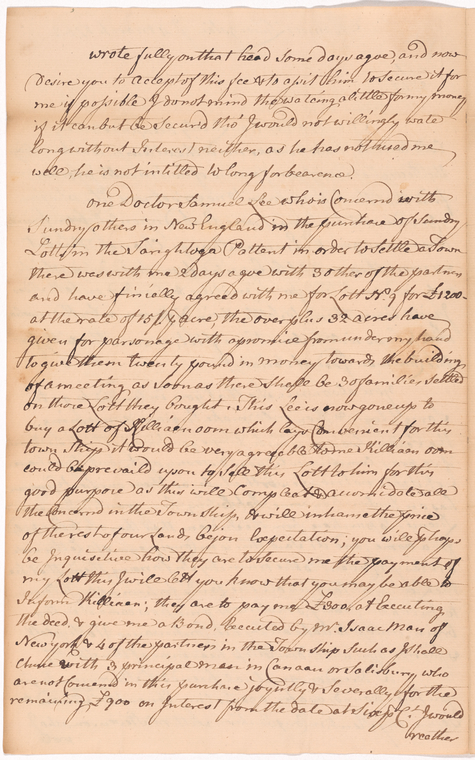 wrote fully on that head some days agoe, and now
Desire you to accept of this fee & to assist him to secure it for
me if possible & do not mind the wateing a little for my money
if it can but be Secured tho' I would not willingly wate
long without Interest neither, as he has not used me
well, he is not intitled to long forbearence.
One Doctor Samuel Lee who is Concernd with
Sundry others in New England in the purchase of Sundry
Lotts in the Saraghtoga Pattent in order to Settle a Town
there was with me 2 days agoe with 3 other of the partners
and have finially agreed with me for Lott No. 9 for £1200
at the rate of 15/. acre, the over plus 32 acres I have
given for parsonage with a promise from under my hand
to give them twenty pound in money towards the building
of a meeting as soon as there shall be 30 families settled
on those Lotts they bought. This Lee is now gone up to
buy a Lott of Killiaen oom which lays Convenient for this
township it would be very agreeable to me Killiaen oom
could be prevaild upon to Sell this Lott to him for this
good purpose as this will Compleat & acomidate all
the Concernd in the Township, & will inhanse the price
of the rest of our Lands beyon Expectation; you will phaps
be Inquisitive how they are to secure me the payment of
my Lott this I will lett you know that you may be able to
Inform Killiaen; they are to pay me £300 at Executing
the deed, & give me a Bond, Executed by Mr. Isaac Man of
New york & 4 of the partners in the Township Such as I shall
Chuse with 3 principal men in Canaan or Salisbury who
are not Concernd in this purchase joyntly & Severally for the
remaining £900 on Interest from the date at Six p Ct. I would
reather